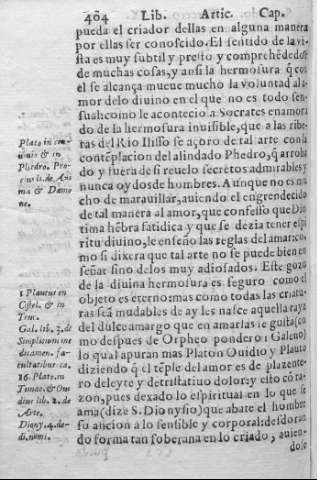 404 Lib. Artic. Cap.
pueda el criador dellas en alguna manera
por ellas ser conoscido. El sentido de la vi-
sta es muy subtil y presto y comprehēdedor
de muchas cosas, y ansi la hermosura q̄ cō
el se alcança mueue mucho la voluntad al a-
mor delo diuino en el que no es todo sen-
sual: como le acontecio a Socrates enamora
do de la hermosura inuisible, que a las ribe-
ras del Rio Ilisso se açoro de tal arte con la
contēplacion del alindado Phedro, q̄ arroba
do y fuera de si reuelo secretos admirables y
oydos de hombres. Aunque no es mu
cho de marauillar, auiendo el engrendecido
de tal manera al amor, que confesso que Dio
tima hēbra fatidica y que se dezia tener espi
ritu diuino, le enseño las reglas del amar: co-
mo si dixera que tal arte no se puede bien en
señar sino delos muy adiosados. Este gozo
de la diuina hermosura es seguro como el
objeto es eterno: mas como todas las criatu
ras seā mudables de ay les nasce aquella raya
del dulce amargo que en amarlas se gusta (co
mo despues de Orpheo pondero Galeno)
lo qual apuran mas Platon Ouidio y Plauto
diziendo q̄ el tēple del amor es de plazente-
ro deleyte y de tristatiuo dolor: y esto cō ra-
zon, pues dexado lo espiritual en lo que se
ama (dize S. Dionysio) que abate el hombre
su aficion a lo sensible y corporal: desdoran
do forma tan soberana en lo criado, auien-
dose
Plato in con
uiuio & in
Phedro. Pro
lib. de Ani
ma & Dæmo
ne.
1 Plautus in
Cistel. & in
Truc.
Gal. lib. 3. de
Simplicium me
dicamen. fa-
cultatibus
16. Plato in
Timæo. & Oui
dius lib. 2. de
Arte.
Diony. 4. de
di. nomi.